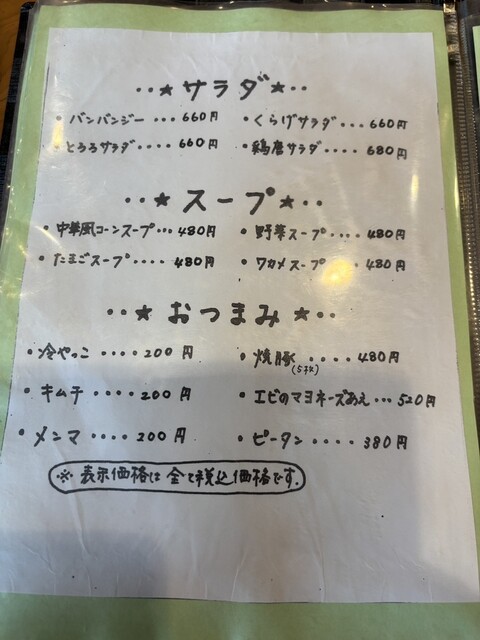 ・・★サラダ★・・
・バンバンジー・・・660円 ・くらげサラダ・・・660円
・とろろサラダ・・・・660円 ・鶏唐サラダ・・・・680円
・・★スープ★・・
・中華風コーンスープ・・・480円 ・野菜スープ・・・・480円
・たまごスープ・・・・480円 ・ワカメスープ・・・・480円
・・★おつまみ★・・
・冷やっこ・・・・200円 ・焼豚(5枚)・・・・480円
・キムチ・・・・200円 ・エビのマヨネーズあえ・・・520円
・メンマ・・・・200円 ・ピータン・・・・380円
※表示価格は全て税込価格です.